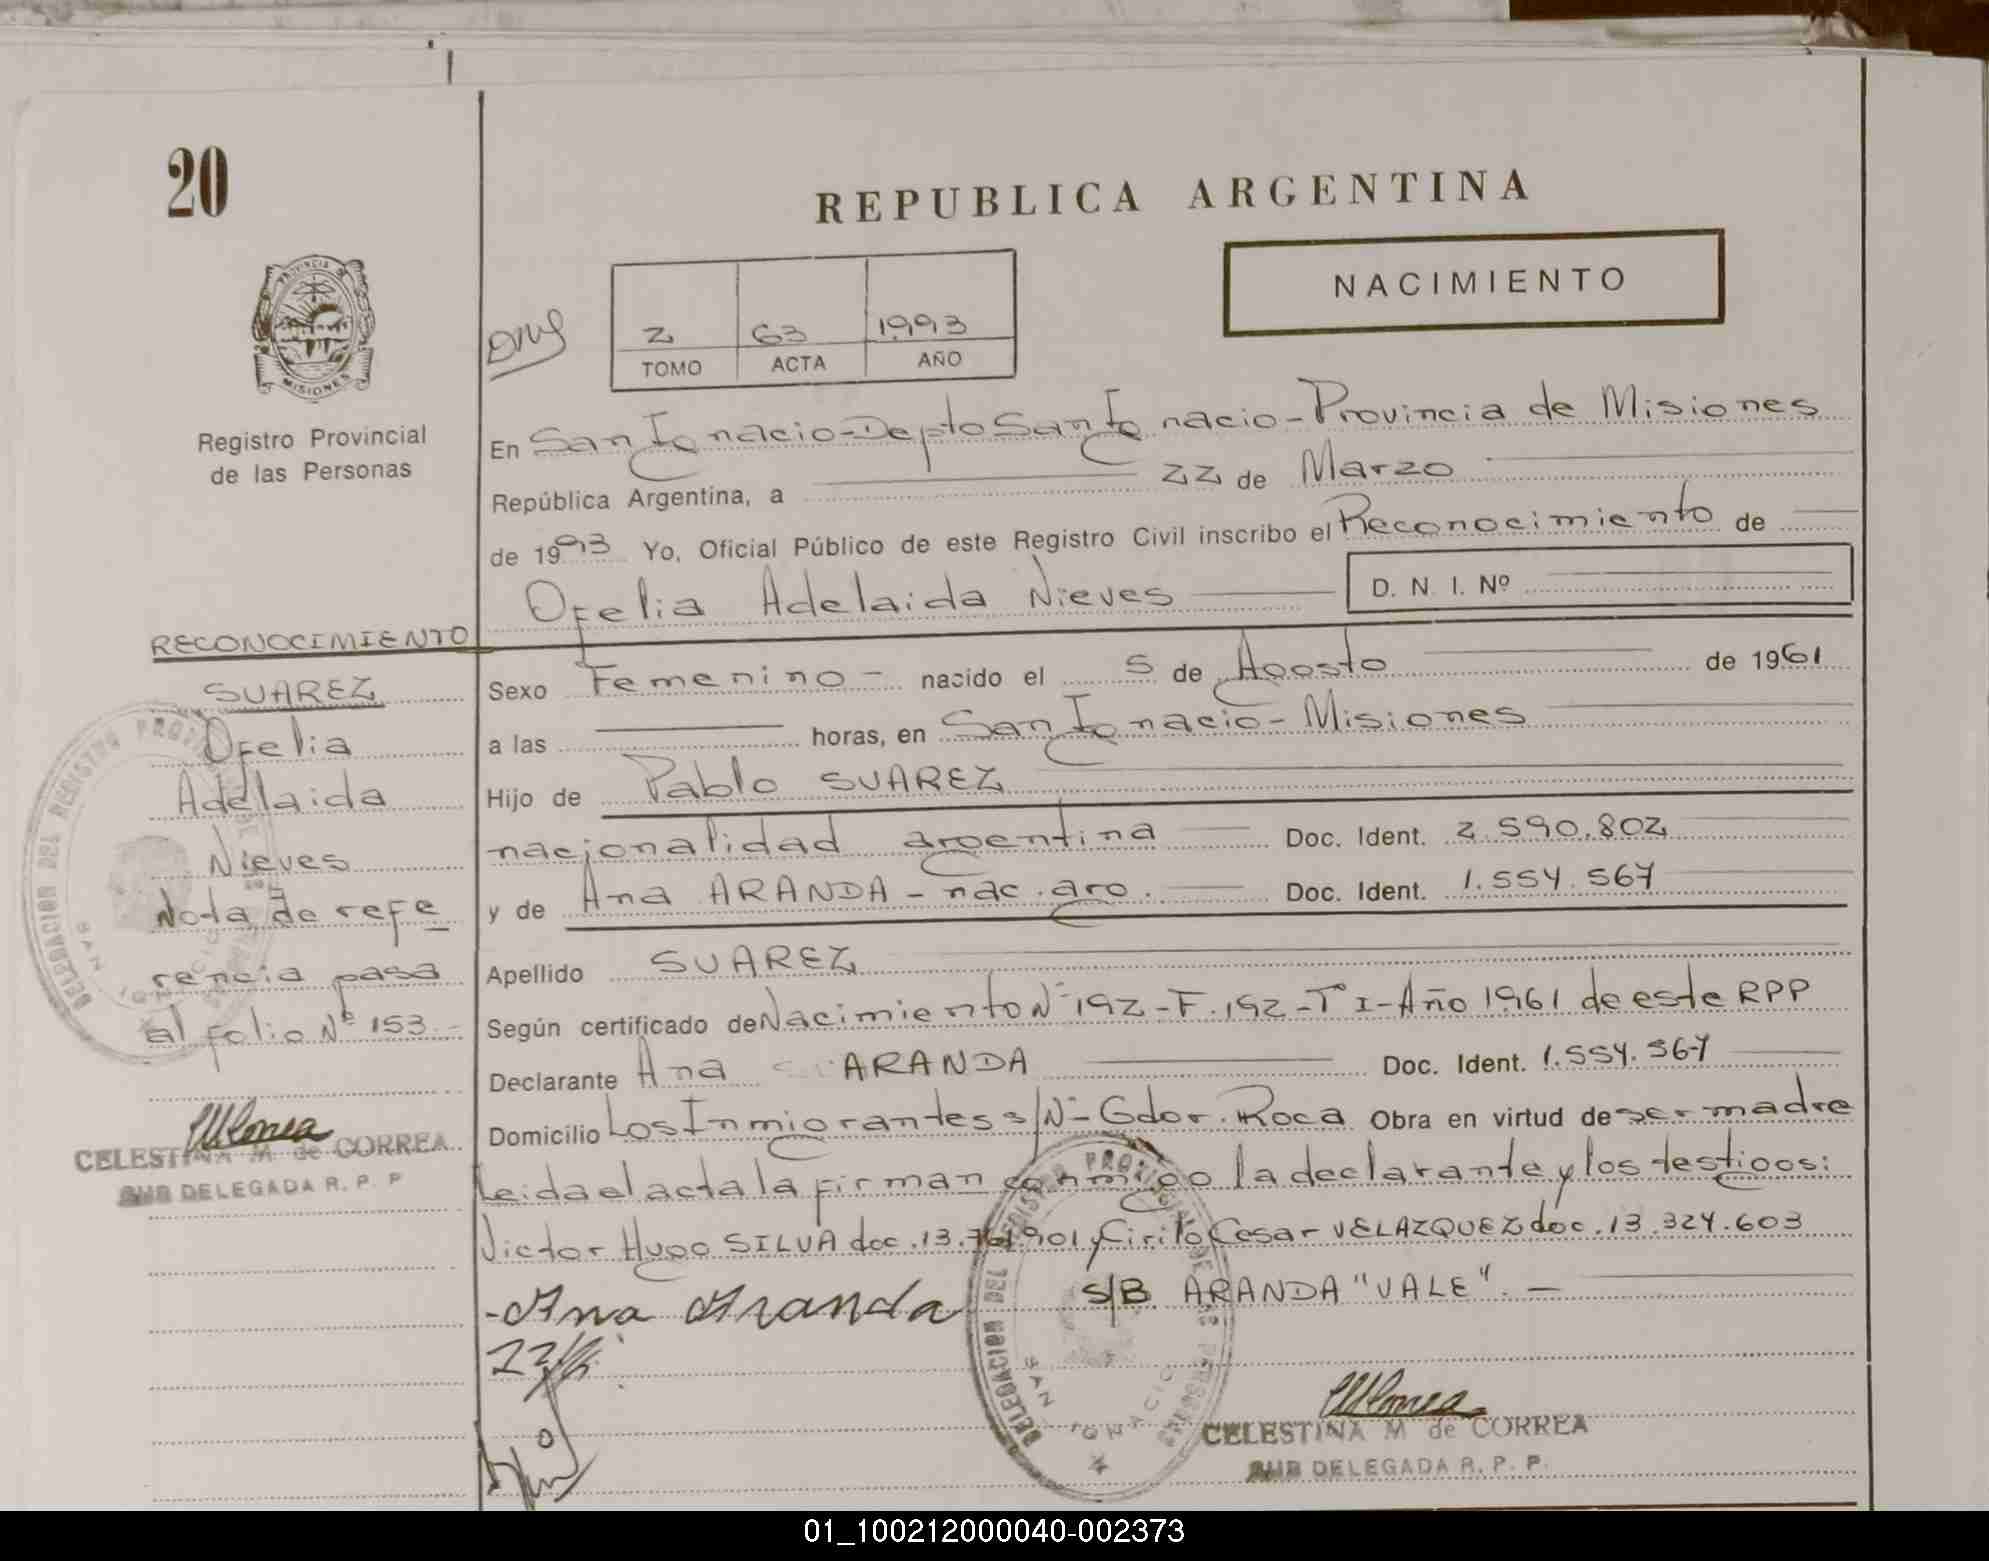 20
REPUBLICA ARGENTINA
NACIMIENTO
2 63 1993
TOMO ACTA AÑO
PROVINCIA DE
MISIONES
Registro Provincial
de las Personas
En San Ignacio-Depto San Ignacio-Provincia de Misiones
República Argentina, a 22 de Marzo
de 1993 Yo, Oficial Público de este Registro Civil inscribo el Reconocimiento de
Ofelia Adelaida Nieves D. N. I. Nº
Sexo Femenino - nacido el 5 de Agosto de 1961
a las horas, en San Ignacio - Misiones
Hijo de Pablo SUAREZ
nacionalidad argentina Doc. Ident. 2.590.802
y de Ana ARANDA - nac. arg. Doc. Ident. 1.554.567
Apellido SUAREZ
Según certificado de Nacimiento Nº 192-F.192-Tº I-Año 1961 de este RPP
Declarante Ana ARANDA Doc. Ident. 1.554.567
Domicilio Los Inmigrantes s/Nº- Gdor. Roca Obra en virtud de ser madre
Leida el acta la firman conmigo la declarante y los testigos:
Victor Hugo SILVA doc. 13.761.901 y Cirilo Cesar VELAZQUEZ doc. 13.324.603
-Ana Aranda S/B ARANDA "VALE". —
CELESTINA M de CORREA
SUB DELEGADA R. P. P.
RECONOCIMIENTO
SUAREZ
Ofelia
Adelaida
Nieves
Nota de refe
rencia pasa
al folio Nº 153.-
CELESTINA M de CORREA
SUB DELEGADA R. P. P
DELEGACION DEL REGISTRO PROVINCIAL DE LAS PERSONAS
SAN IGNACIO
DELEGACION DEL REGISTRO PROVINCIAL DE LAS PERSONAS
SAN IGNACIO
01_100212000040-002373